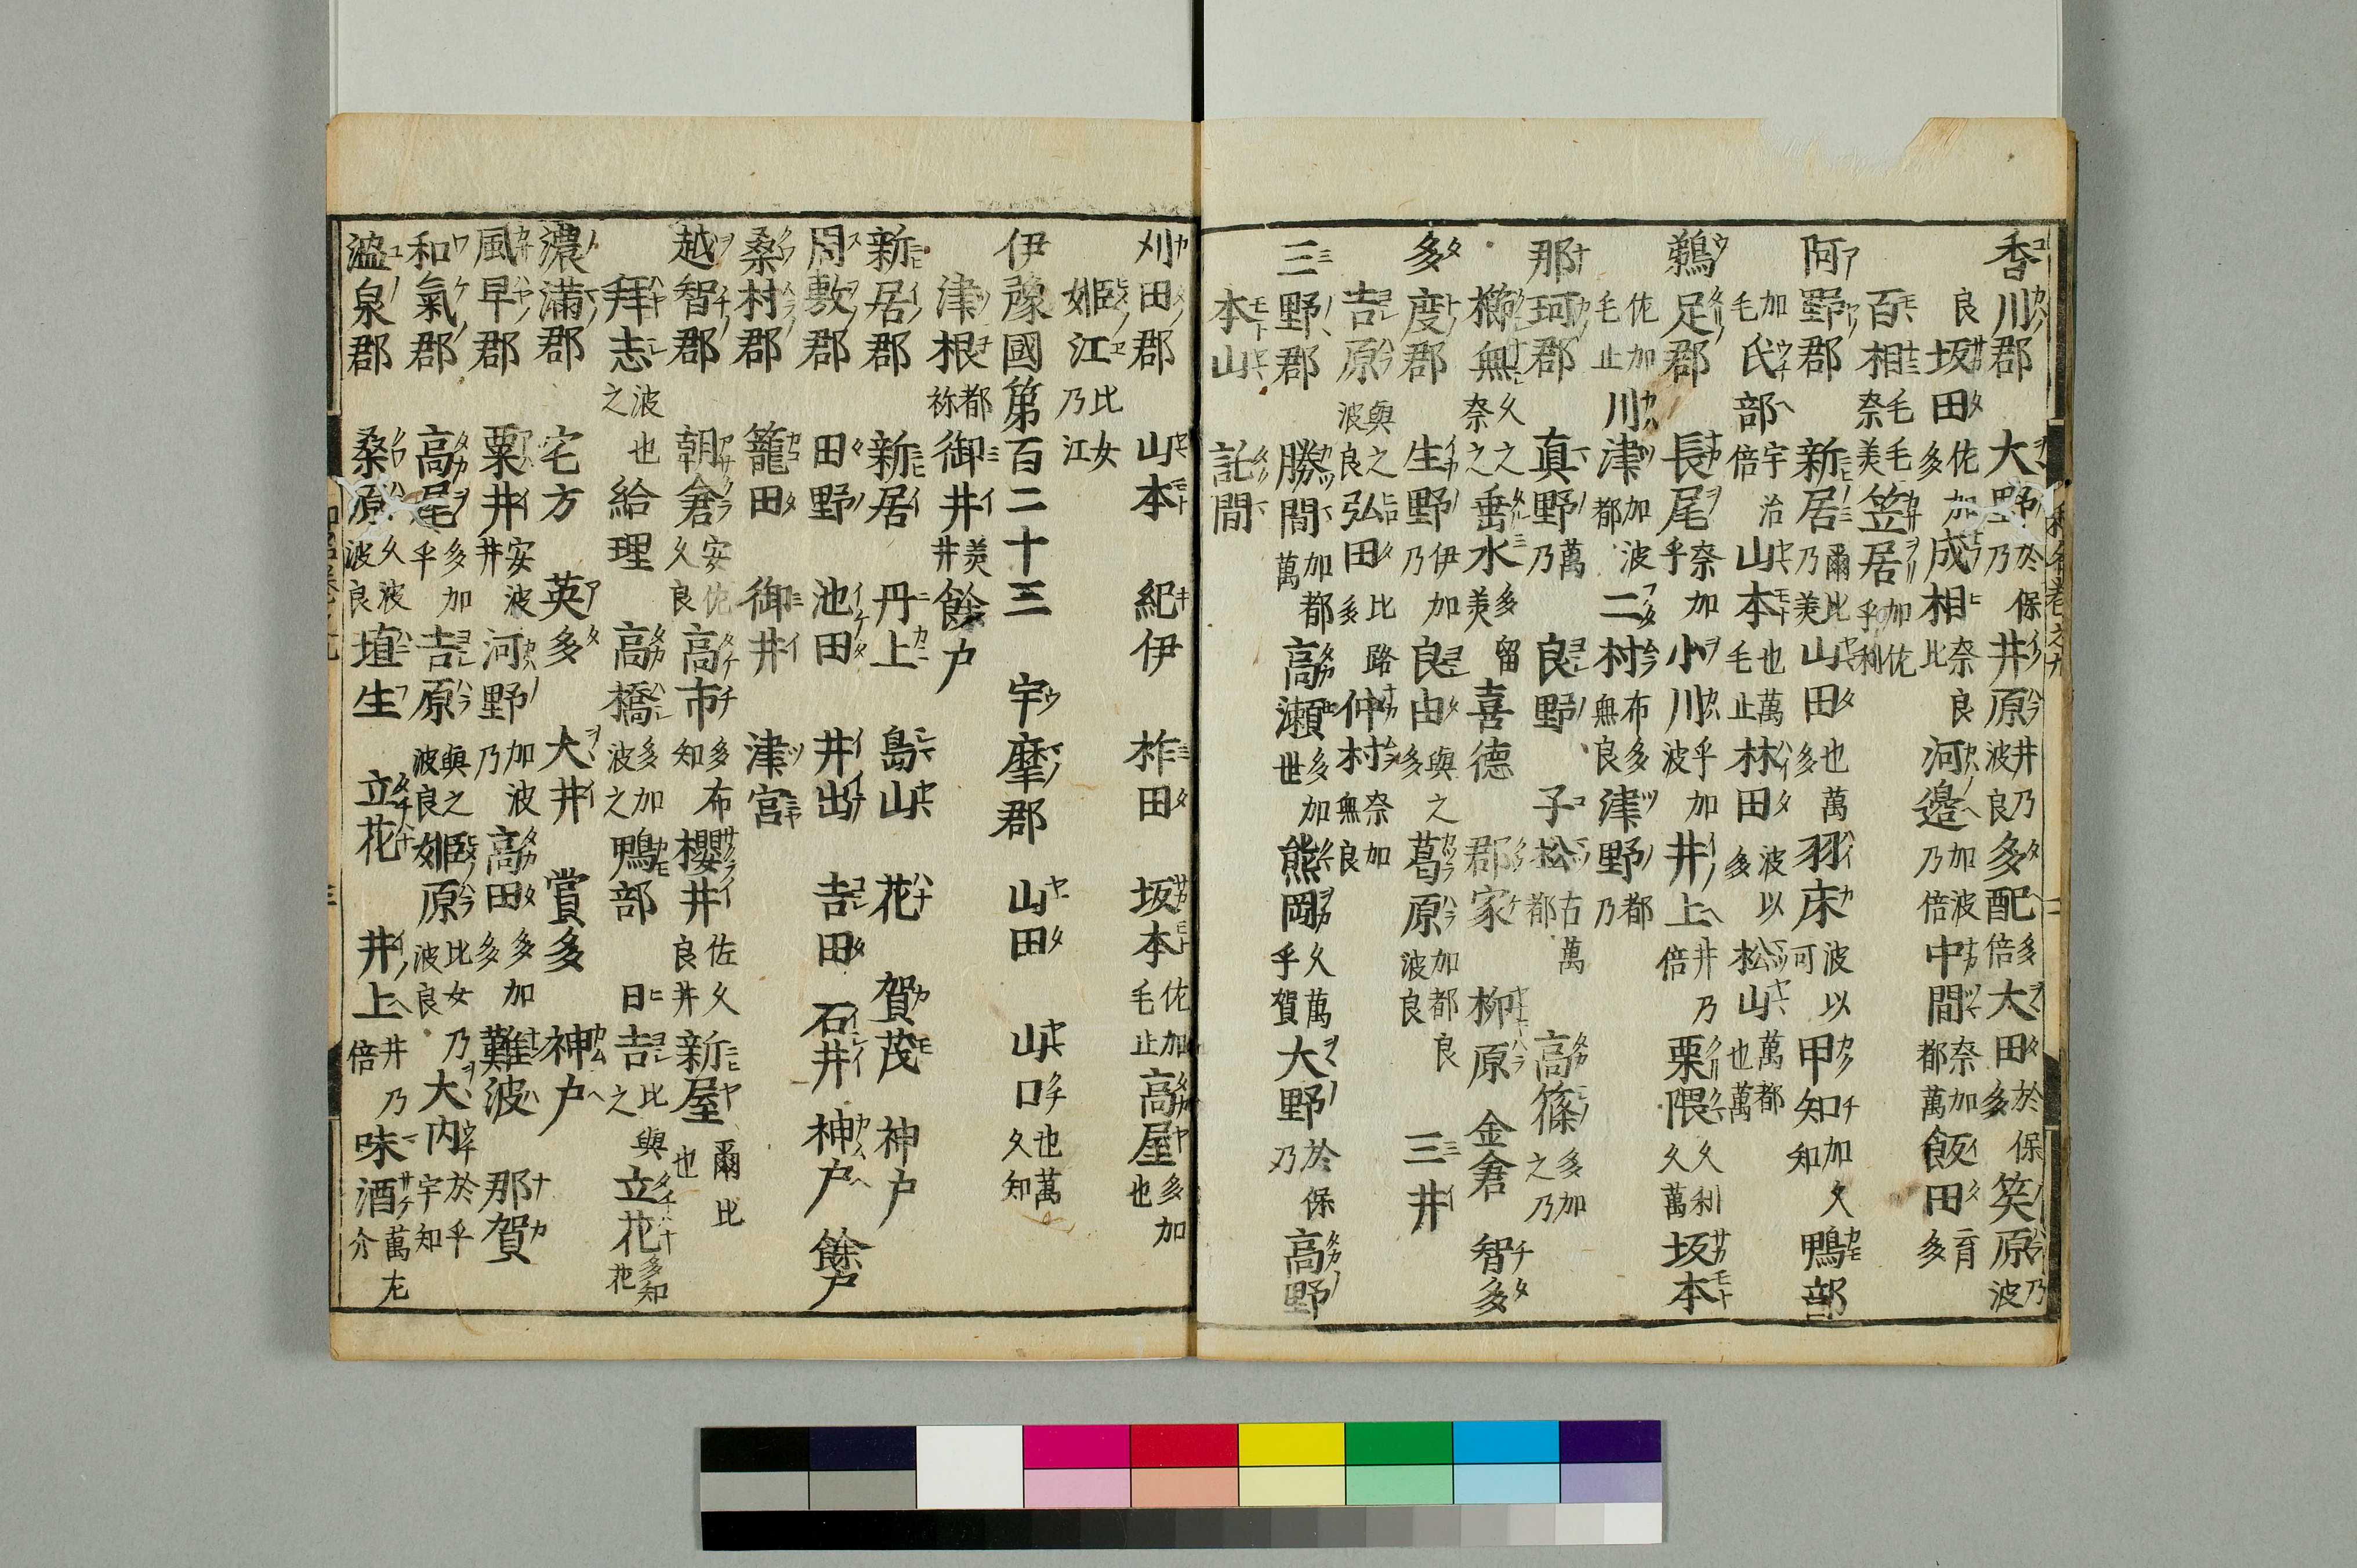 香川郡 大野乃於保 井原井乃波良 多配多倍 大田於保多 笑原乃波
良 坂田佐加多 成相奈良比 河邊加波乃倍 中間奈加都萬 飯田二育多
百相毛毛奈美 笠居加佐乎利
阿野郡 新居爾比乃美 山田也萬多 羽床波以可 甲知加久知 鴨部
加毛 氏部宇治倍 山本也萬毛止 林田波以多 松山萬都也萬
鵜足郡 長尾奈加乎 小川乎加波 井上井乃倍 栗隈久利久萬 坂本
佐加毛止 川津加波都 二村布多無良 津野都乃
那珂郡 真野萬乃 良野 子松古萬都 高篠多加之乃
櫛無久之奈之 垂水多留美 喜德 郡家 柳原 金倉 智多
多度郡 生野伊加乃 良田與之多 葛原加都良波良 三井
吉原與之波良 弘田比路多 仲村奈加無良
三野郡 勝間加都萬 高瀬多加世 熊岡久萬乎賀 大野於保乃 高野
本山 託間
刈田郡 山本 紀伊 柞田 坂本佐加毛止 高屋多加也
姫江比女乃江
伊豫國第百二十三 宇摩郡 山田 山口也萬久知
津根都祢 御井美井 餘户
新居郡 新居 丹上 島山 花 賀茂 神户
周敷郡 田野 池田 井出 吉田 石井 神户 餘户
桑村郡 籠田 御井 津宮
越智郡 朝倉安佐久良 高市多布知 櫻井佐久良井 新屋爾比也
拜志波也之 給理 高橋多加波之 鴨部 日吉比與之 立花多知花
濃滿郡 宅方 英多 大井 賞多 神户
風早郡 粟井安波井 河野加波乃 高田多加多 難波 那賀
和氣郡 高尾多加乎 吉原與之波良 姫原比女乃波良 大内於乎宇知
溫泉郡 桑原久波波良 埴生 立花 井上井乃倍 味酒萬左介